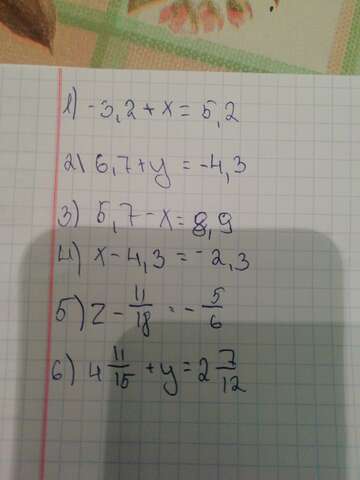 1) -3,2 + x = 5,2
2) 6,7 + y = -4,3
3) 5,7 - x = 8,9
4) x - 4,3 = -2,3
5) z - 11/18 = - 5/6
6) 4 11/15 + y = 2 7/12